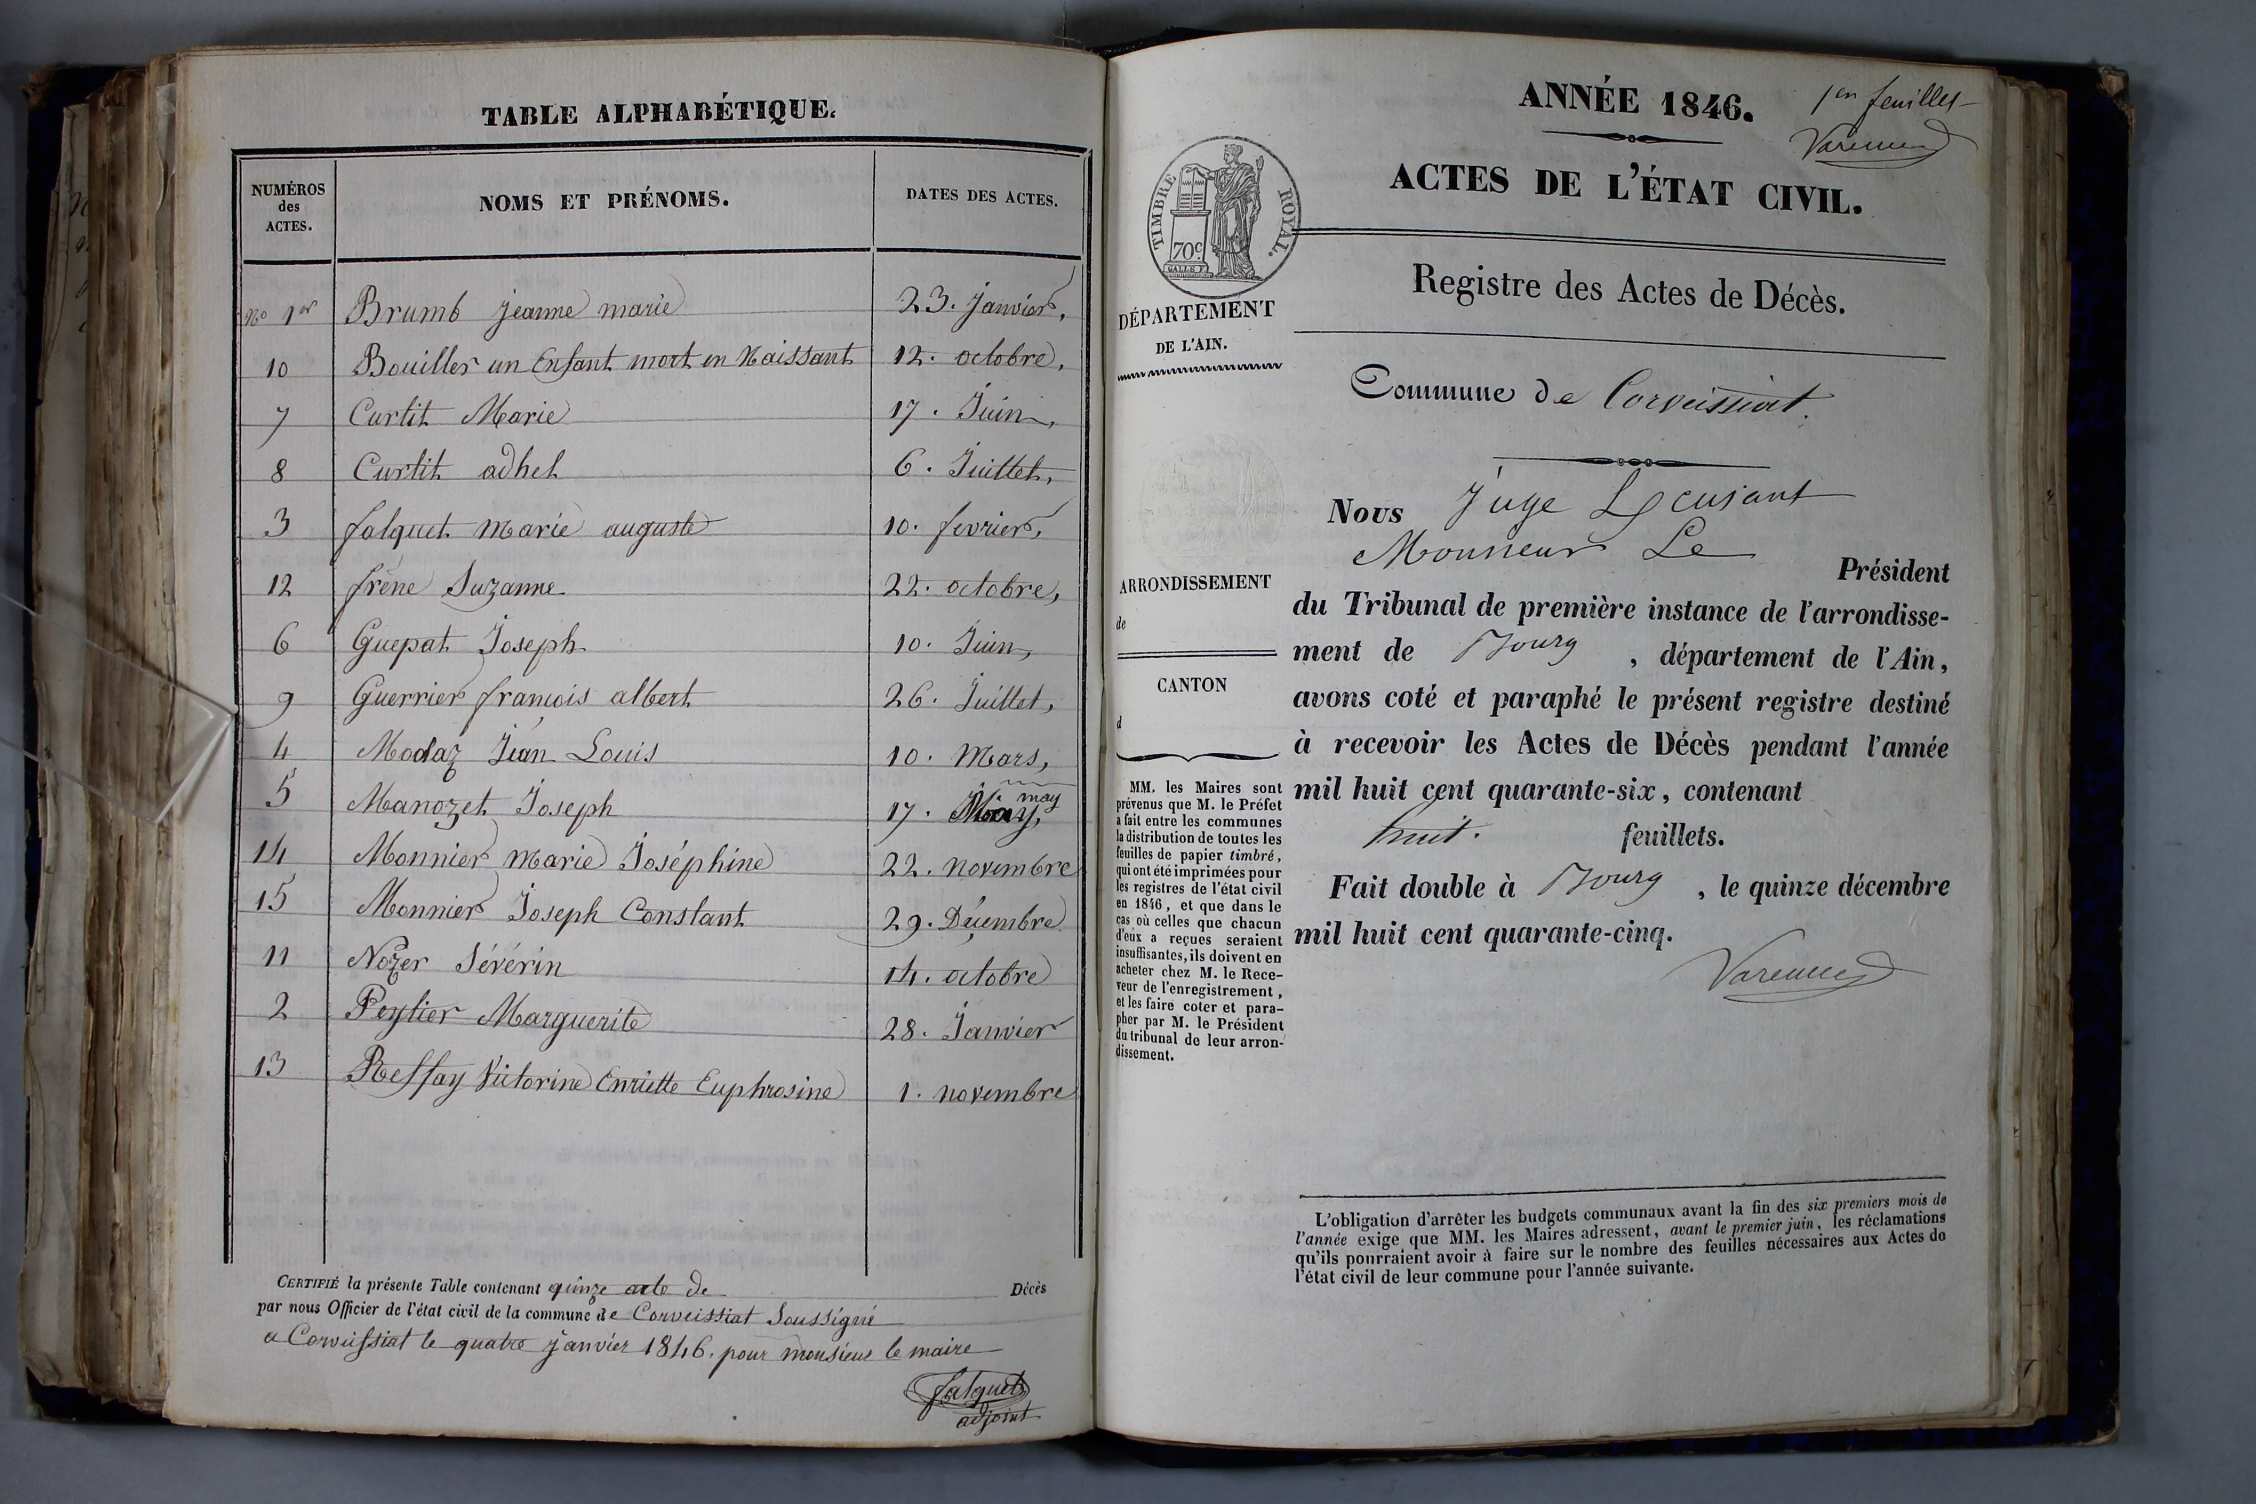 TABLE ALPHABÉTIQUE.
NUMÉROS des ACTES.
NOMS ET PRÉNOMS.
DATES DES ACTES.
No 1er Brumb jeanne marie 23. janvier,
10 Bouiller un Enfant mort en Naissant 12. octobre,
7 Curtit Marie 17. Juin,
8 Curtit adhel 6. Juillet,
3 falquet marie auguste 10. fevrier,
12 frène Suzanne 22. octobre,
6 Guepat Joseph 10. Juin,
9 Guerrier francois albert 26. Juillet,
4 Modaz Jean Louis 10. Mars,
5 Manozet Joseph 17. may
14 Monnier marie Joséphine 22. novembre
15 Monnier Joseph Constant 29. Décembre
11 Nozer Sévérin 14. octobre
2 Peylier Marguerite 28. Janvier
13 Reffay Victorine Enriette Euphrosine 1. novembre
CERTIFIÉ la présente Table contenant quinze acte de Décès
par nous Officier de l'état civil de la commune de Corveissiat Soussigné
a Corveissiat le quatre janvier 1846. pour monsieur le maire
falquet
adjoint
ANNÉE 1846.
1er feuillet
Varenne
ACTES DE L'ÉTAT CIVIL.
TIMBRE ROYAL.
70c
Registre des Actes de Décès.
DÉPARTEMENT
DE L'AIN.
Commune de Corveissiat.
Nous Juge
Monsieur Le Président
du Tribunal de première instance de l'arrondisse-
ment de Bourg, département de l'Ain,
avons coté et paraphé le présent registre destiné
à recevoir les Actes de Décès pendant l'année
mil huit cent quarante-six, contenant
huit. feuillets.
Fait double à Bourg, le quinze décembre
mil huit cent quarante-cinq.
Varenne
ARRONDISSEMENT
de
CANTON
d
MM. les Maires sont
prévenus que M. le Préfet
a fait entre les communes
la distribution de toutes les
feuilles de papier timbré,
qui ont été imprimées pour
les registres de l'état civil
en 1846, et que dans le
cas où celles que chacun
d'eux a reçues seraient
insuffisantes, ils doivent en
acheter chez M. le Rece-
veur de l'enregistrement,
et les faire coter et para-
pher par M. le Président
du tribunal de leur arron-
dissement.
L'obligation d'arrêter les budgets communaux avant la fin des six premiers mois de
l'année exige que MM. les Maires adressent, avant le premier juin, les réclamations
qu'ils pourraient avoir à faire sur le nombre des feuilles nécessaires aux Actes de
l'état civil de leur commune pour l'année suivante.